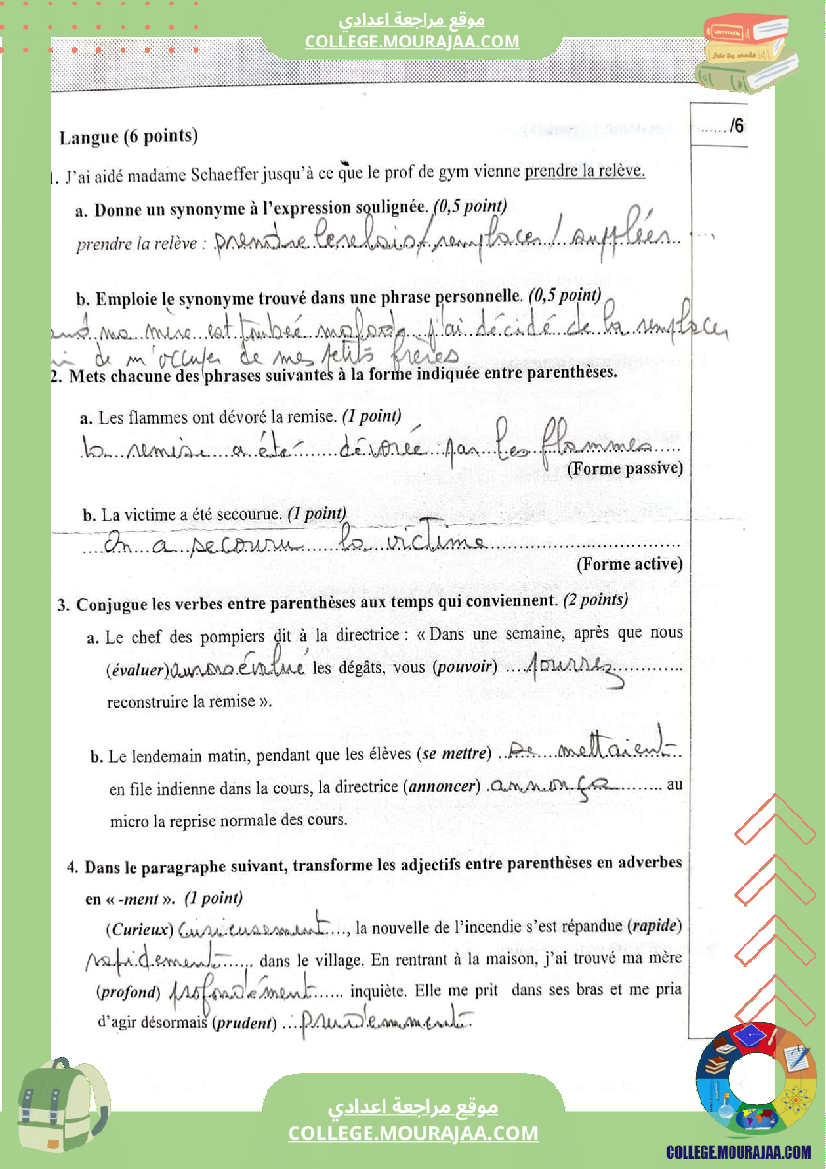 موقع مراجعة اعدادي
COLLEGE.MOURAJAA.COM
....../6
Langue (6 points)
1. J'ai aidé madame Schaeffer jusqu'à ce que le prof de gym vienne prendre la relève.
a. Donne un synonyme à l'expression soulignée. (0,5 point)
prendre la relève : prendre le relais / remplacer / suppléer
b. Emploie le synonyme trouvé dans une phrase personnelle. (0,5 point)
ma mère est tombée malade j'ai décidé de la remplacer
de m'occuper de mes petits frères
2. Mets chacune des phrases suivantes à la forme indiquée entre parenthèses.
a. Les flammes ont dévoré la remise. (1 point)
la remise a été dévorée par les flammes
(Forme passive)
b. La victime a été secourue. (1 point)
On a secouru la victime
(Forme active)
3. Conjugue les verbes entre parenthèses aux temps qui conviennent. (2 points)
a. Le chef des pompiers dit à la directrice : « Dans une semaine, après que nous
(évaluer) évalué les dégâts, vous (pouvoir) pourrez
reconstruire la remise ».
b. Le lendemain matin, pendant que les élèves (se mettre) se mettaient
en file indienne dans la cours, la directrice (annoncer) annonça au
micro la reprise normale des cours.
4. Dans le paragraphe suivant, transforme les adjectifs entre parenthèses en adverbes
en « -ment ». (1 point)
(Curieux) Curieusement, la nouvelle de l'incendie s'est répandue (rapide)
rapidement dans le village. En rentrant à la maison, j'ai trouvé ma mère
(profond) profondément inquiète. Elle me prit dans ses bras et me pria
d'agir désormais (prudent) prudemment.
موقع مراجعة اعدادي
COLLEGE.MOURAJAA.COM
COLLEGE.MOURAJAA.COM